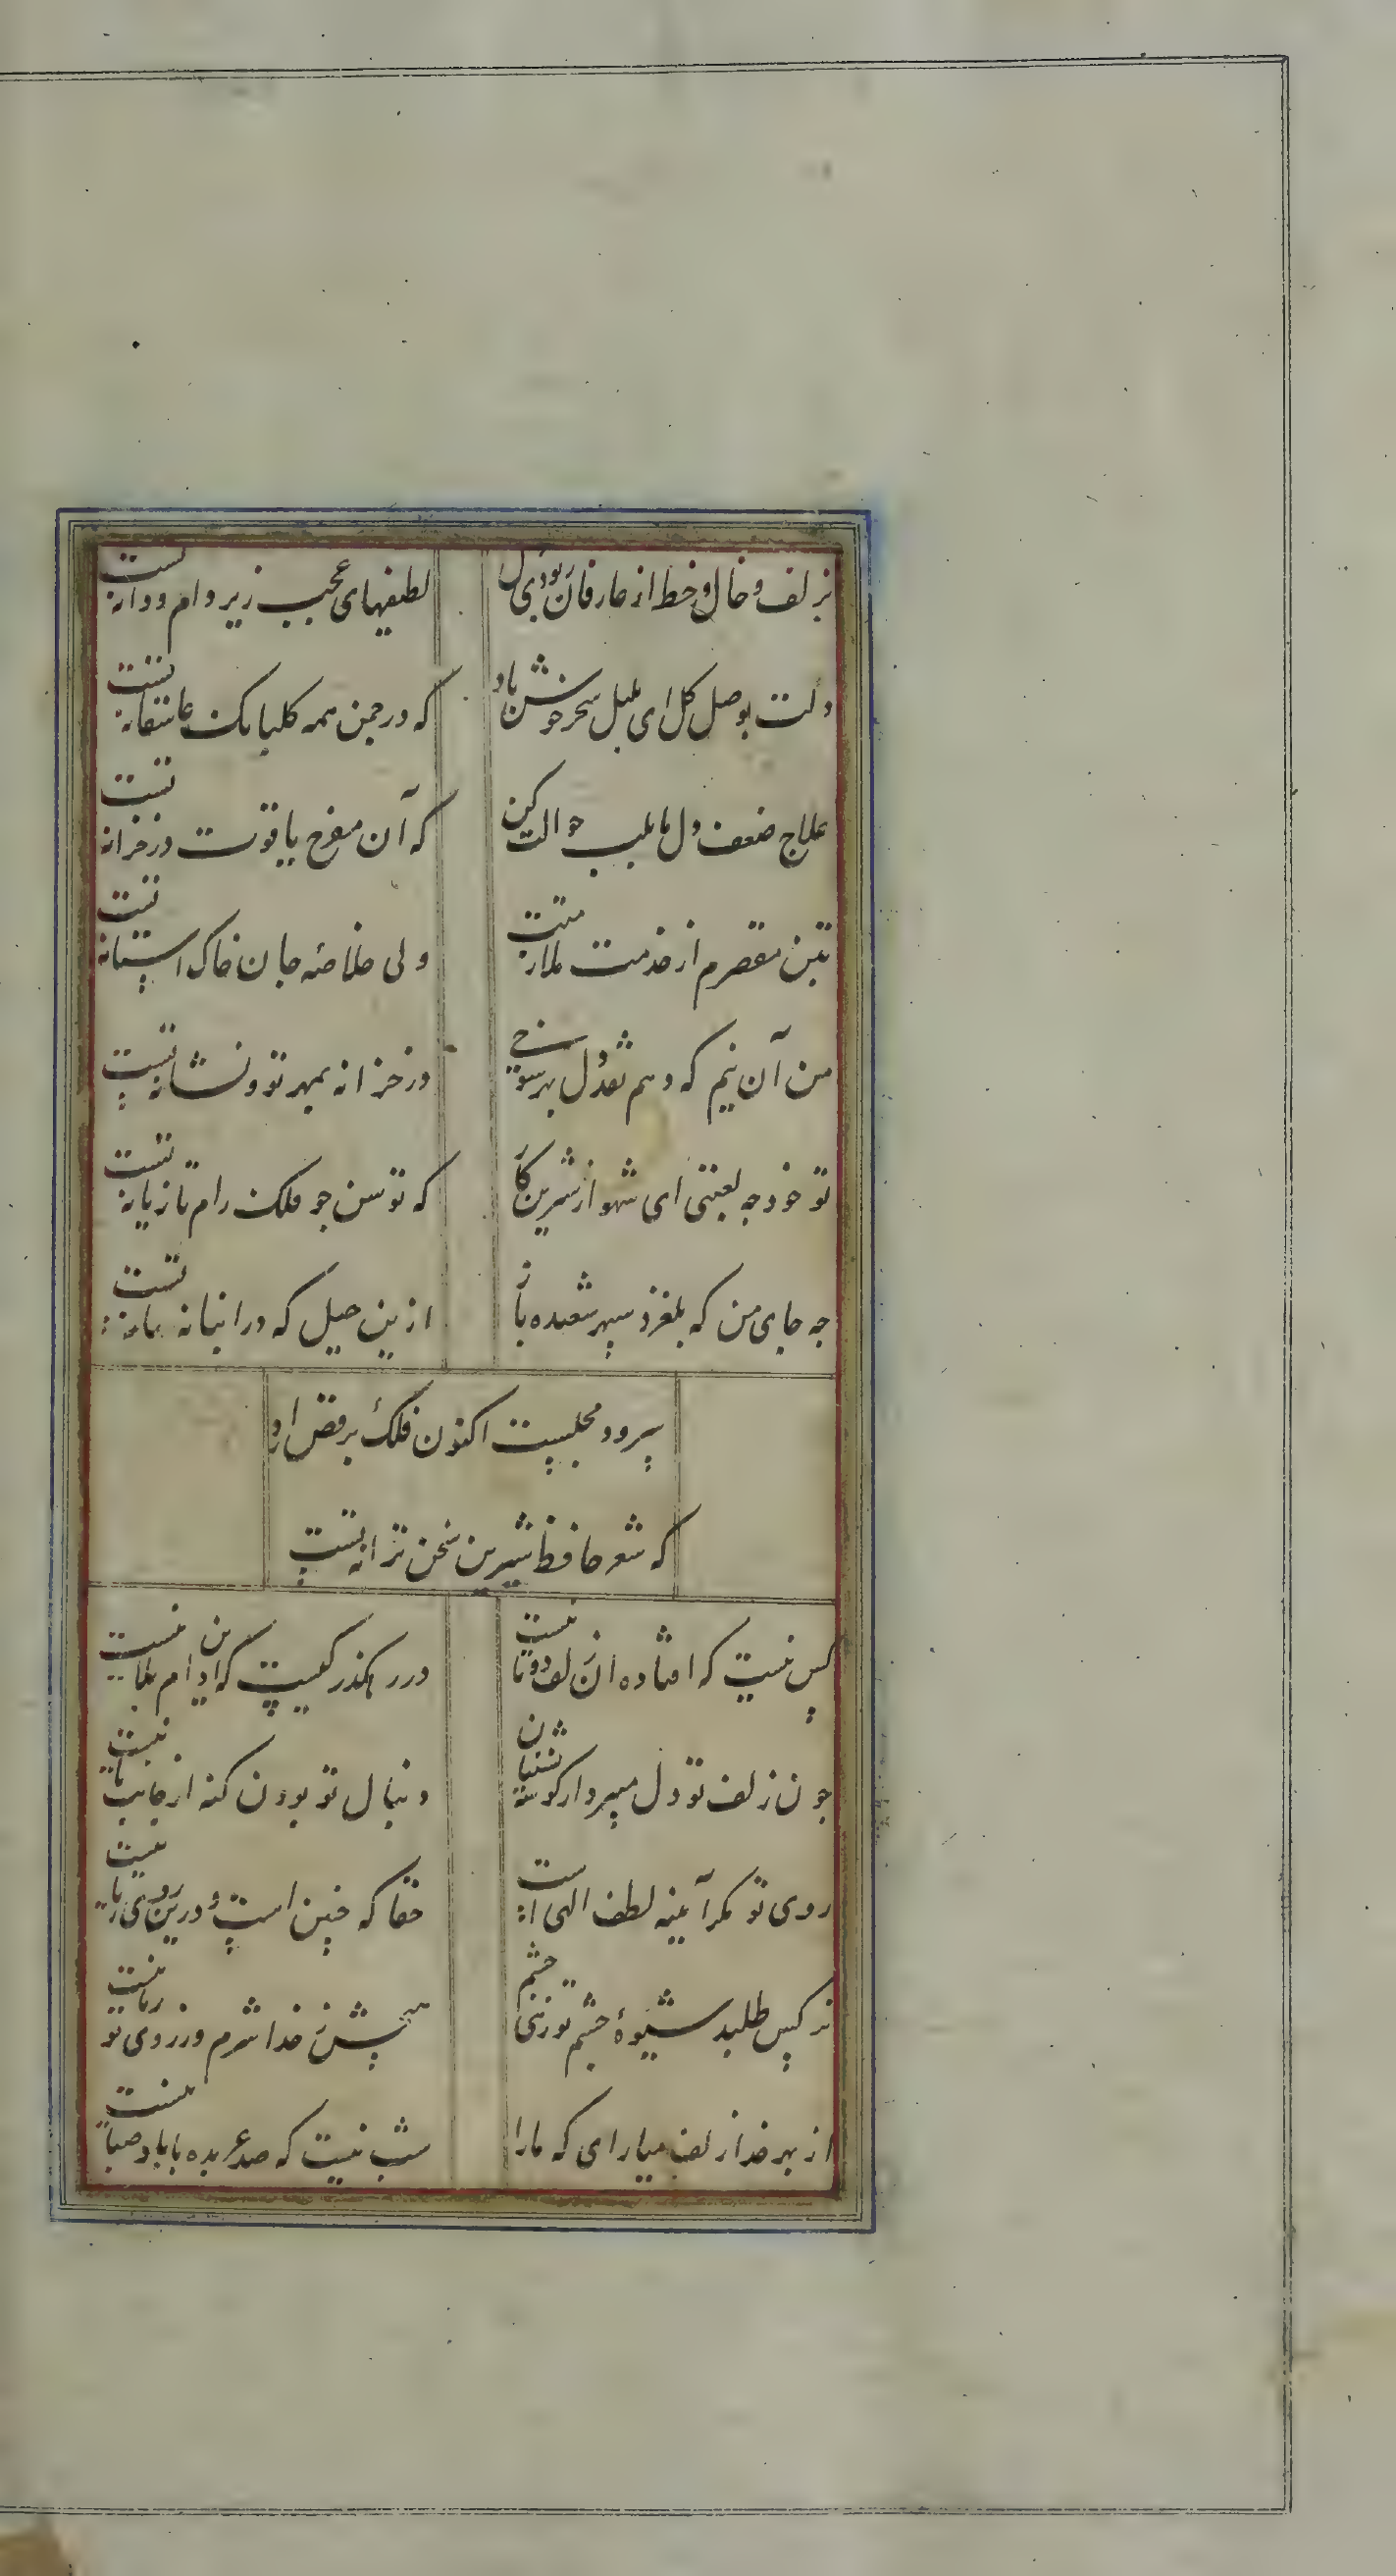 بزلف و خال و خط از عارفان ربودی دل لطیفهای عجب زیر دام و دانه تست
دلت بوصل کل ای بلبل سحر خوش باد که در جمن همه کلبانک عاشقانه تست
علاج ضعف دل ما بلب حوالت کن که آن مفرح یاقوت در خزانه تست
بتن مقصرم از خدمت ملازمتت ولی خلاصه جان خاک استانه تست
من آن نیم که دهم نقد دل بهر سوخی در خزانه بمهر تو و نشانه تست
تو خود جه لعبتی ای شهسوار شیرین کار که توسن جو فلک رام تازیانه تست
جه جای من که بلغزد سپهر شعبده باز ازین حیل که در انبانه بهانه تست
سرود مجلست اکنون فلک برقص ارد
که شعر حافظ شیرین سخن ترانه تست
کس نیست که افتاده ان زلف دوتا نیست در رهکذر کیست که این دام بلا نیست
جون زلف تو دل میبرد از کوشه نشینان دنبال تو بودن کنه از جانب ما نیست
روی تو مکر آینه لطف الهی است حقا که چنین است و درین روی ریا نیست
نرکس طلبد شیوه چشم تو زهی چشم مسکین خبرش از سر و در دیده حیا نیست
از بهر خدا زلف میارای که ما را شب نیست که صد عربده با باد صبا نیست